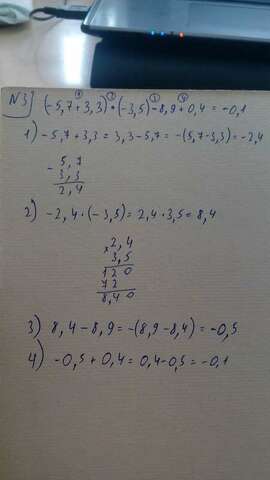 N3) (-5,7+3,3)•(-3,5)-8,9+0,4=-0,1
1) -5,7+3,3=3,3-5,7=-(5,7-3,3)=-2,4
-5,7
3,3
2,4
2) -2,4•(-3,5)=2,4•3,5=8,4
×2,4
3,5
120
72
8,40
3) 8,4-8,9=-(8,9-8,4)=-0,5
4) -0,5+0,4=0,4-0,5=-0,1